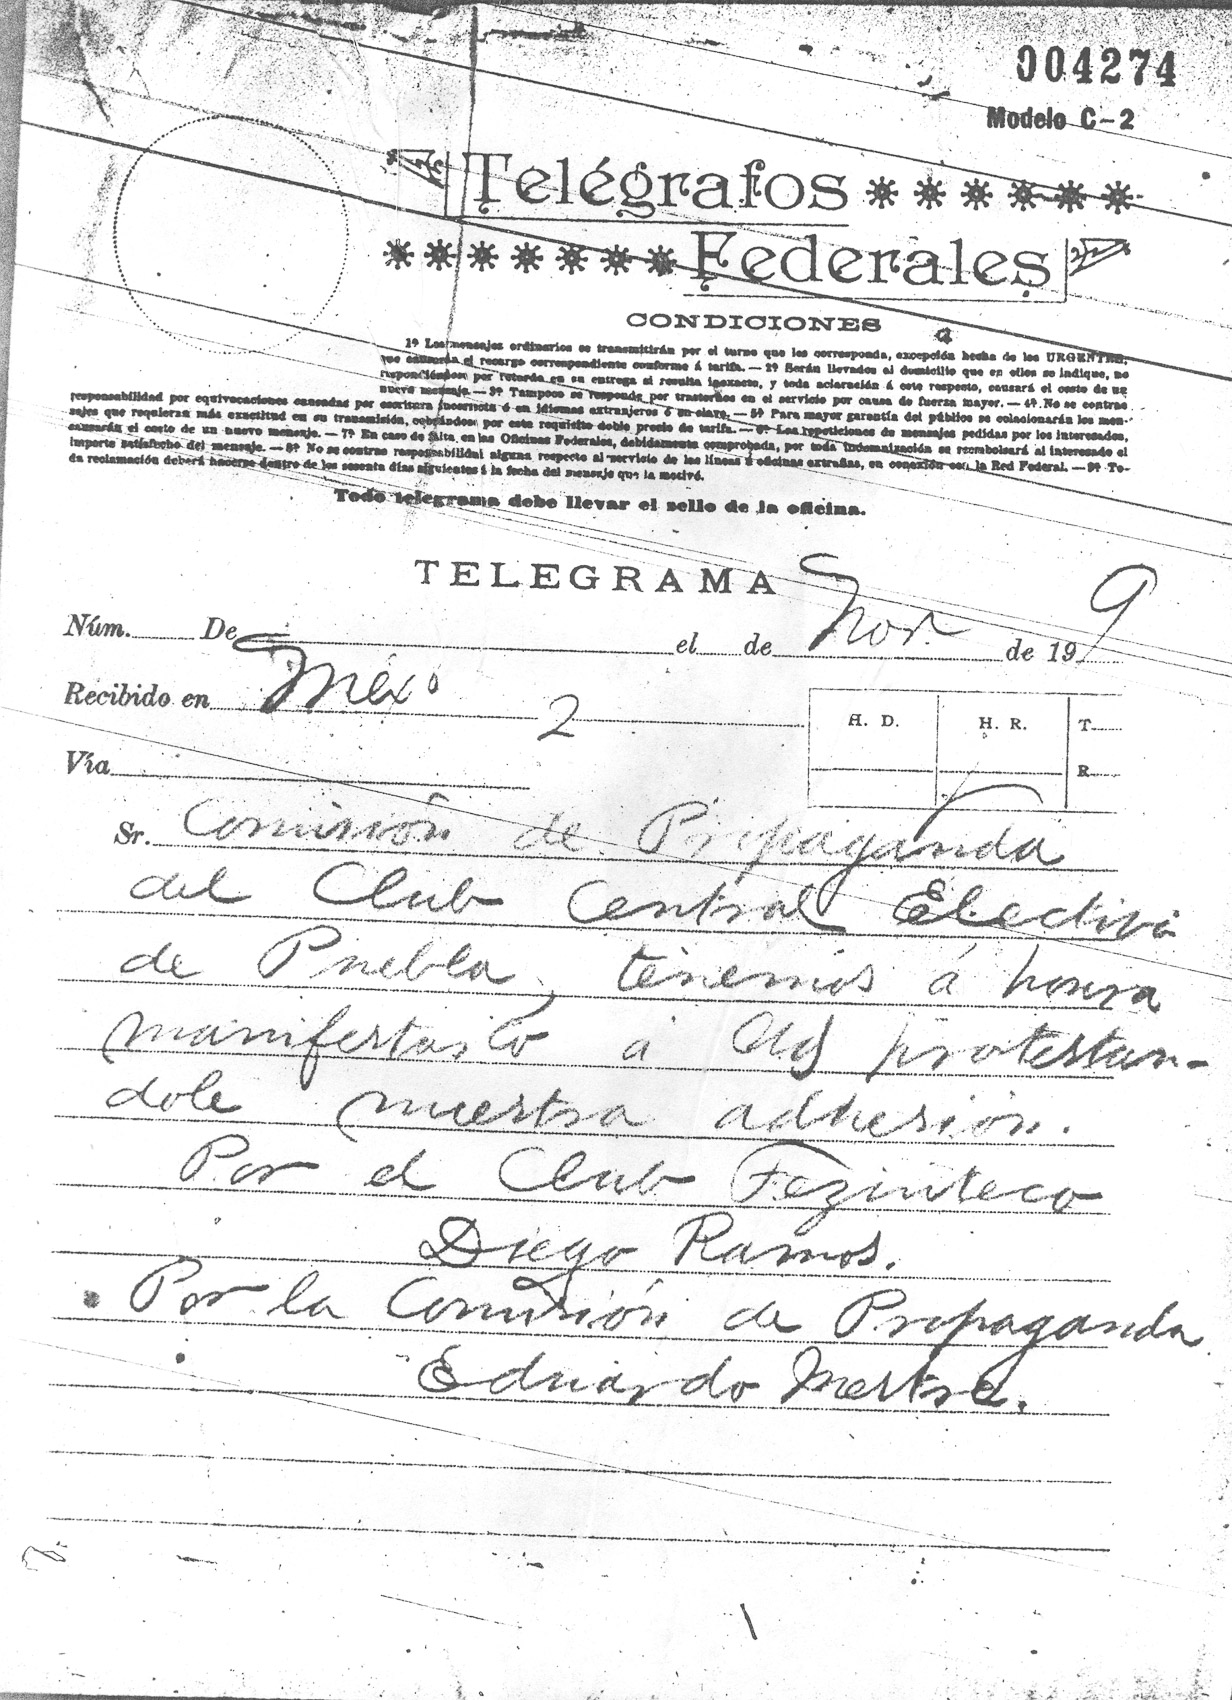 004274
Modelo C-2
Telégrafos
Federales
CONDICIONES
1ª Los mensajes ordinarios se transmitirán por el turno que les corresponda, excepción hecha de los URGENTES,
que causarán el recargo correspondiente conforme á tarifa. — 2ª Serán llevados al domicilio que en ellos se indique, no
respondiéndose por retardo en su entrega si resulta inexacto, y toda aclaración á este respecto, causará el costo de un
nuevo mensaje. — 3ª Tampoco se responde por trastornos en el servicio por causa de fuerza mayor. — 4ª No se contrae
responsabilidad por equivocaciones causadas por escritura incorrecta ó en idiomas extranjeros ó en clave. — 5ª Para mayor garantía del público se colacionarán los men-
sajes que requieran más exactitud en su transmisión, cobrándose por este requisito doble precio de tarifa. — 6ª Las repeticiones de mensajes pedidas por los interesados,
causarán el costo de un nuevo mensaje. — 7ª En caso de falta, en las Oficinas Federales, debidamente comprobada, por toda indemnización se reembolsará al interesado el
importe satisfecho del mensaje. — 8ª No se contrae responsabilidad alguna respecto al servicio de las líneas ú oficinas extrañas, en conexión con la Red Federal. — 9ª To-
da reclamación deberá hacerse dentro de los sesenta días siguientes á la fecha del mensaje que la motivó.
Todo telegrama debe llevar el sello de la oficina.
TELEGRAMA
Núm. De el de Nov. de 19 9
Recibido en Méxº 2
H. D. H. R. T.
R.
Vía
Sr. Comisión de Propaganda
del Club Central Electivo
de Puebla, tenemos á honra
manifestarlo á Uds protestan-
dole nuestra adhesión.
Por el Club Tezinteco
Diego Ramos.
Por la Comisión de Propaganda
Eduardo Mestre.